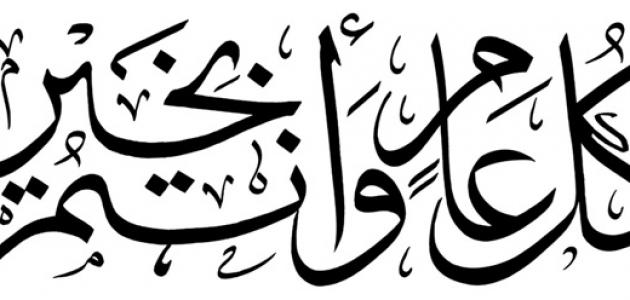 كُل عَامٍ وَأنتُم بِخَيْر